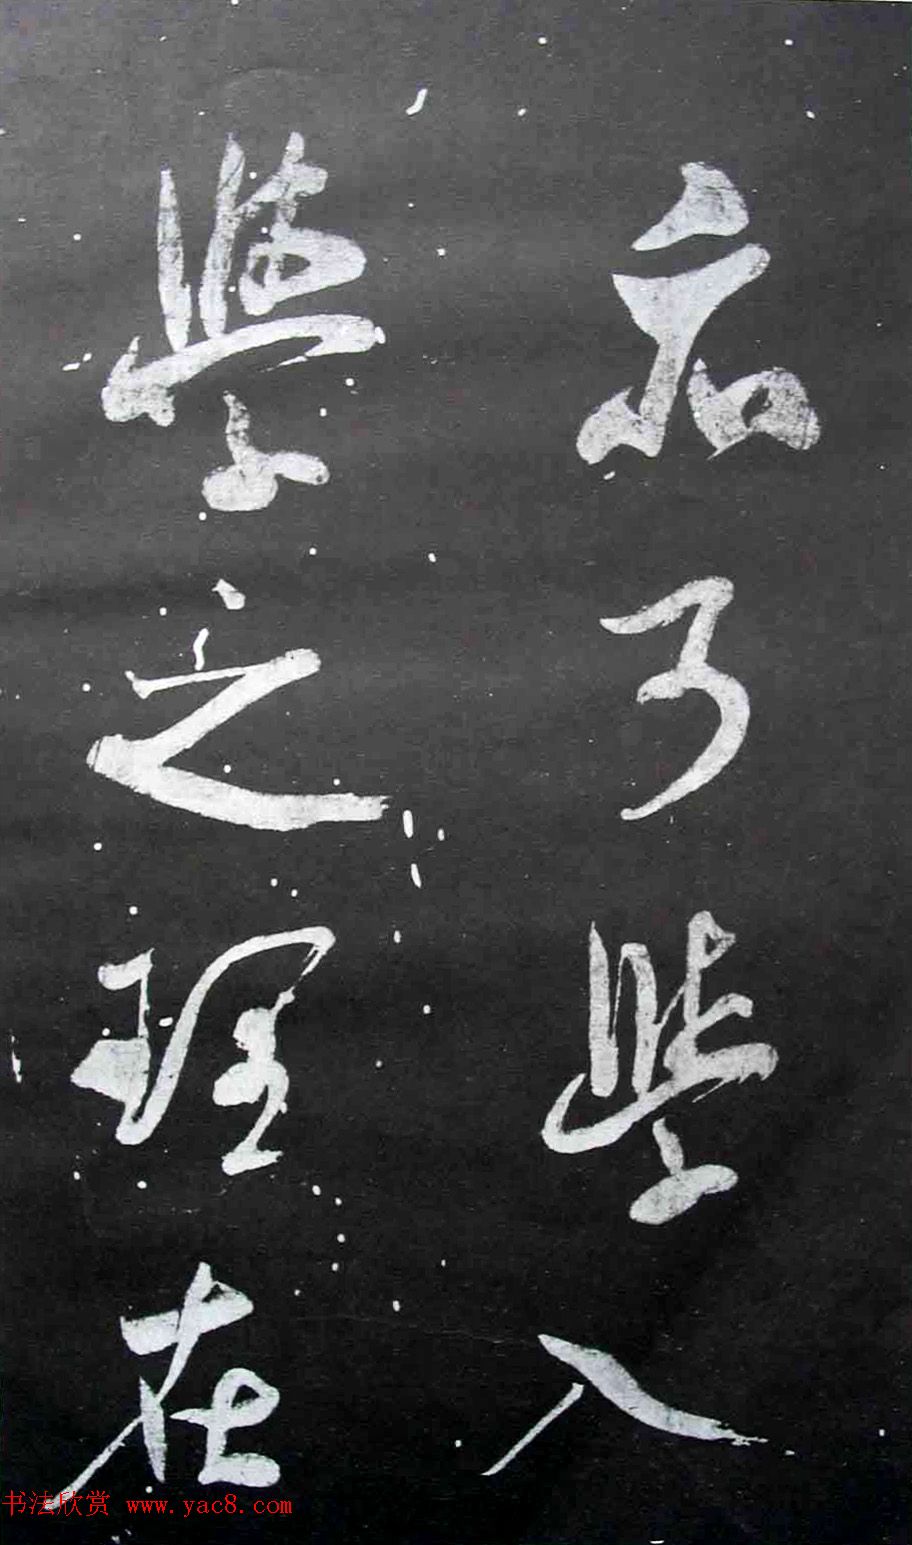 了學入
學之理在
书法欣赏 www.yac8.com